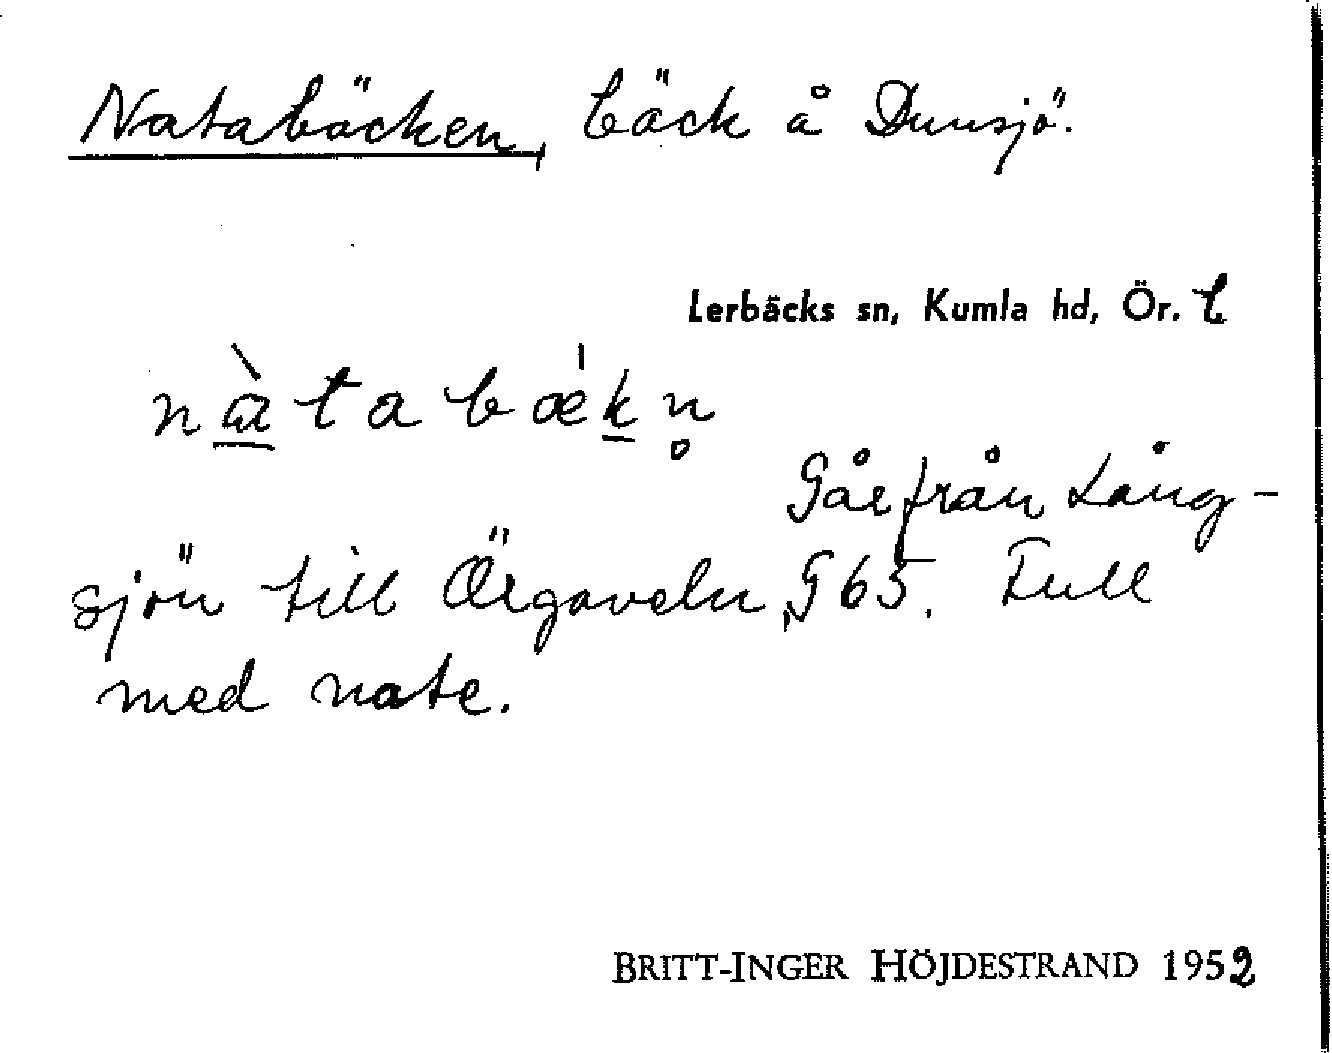 Natabäcken, bäck å Dunsjö.
Lerbäcks sn, Kumla hd, Ör. l
nàtabǽkn̥
Går från Lång-
sjön till Örgaveln, G65. Full
med nate.
BRITT-INGER HÖJDESTRAND 1952